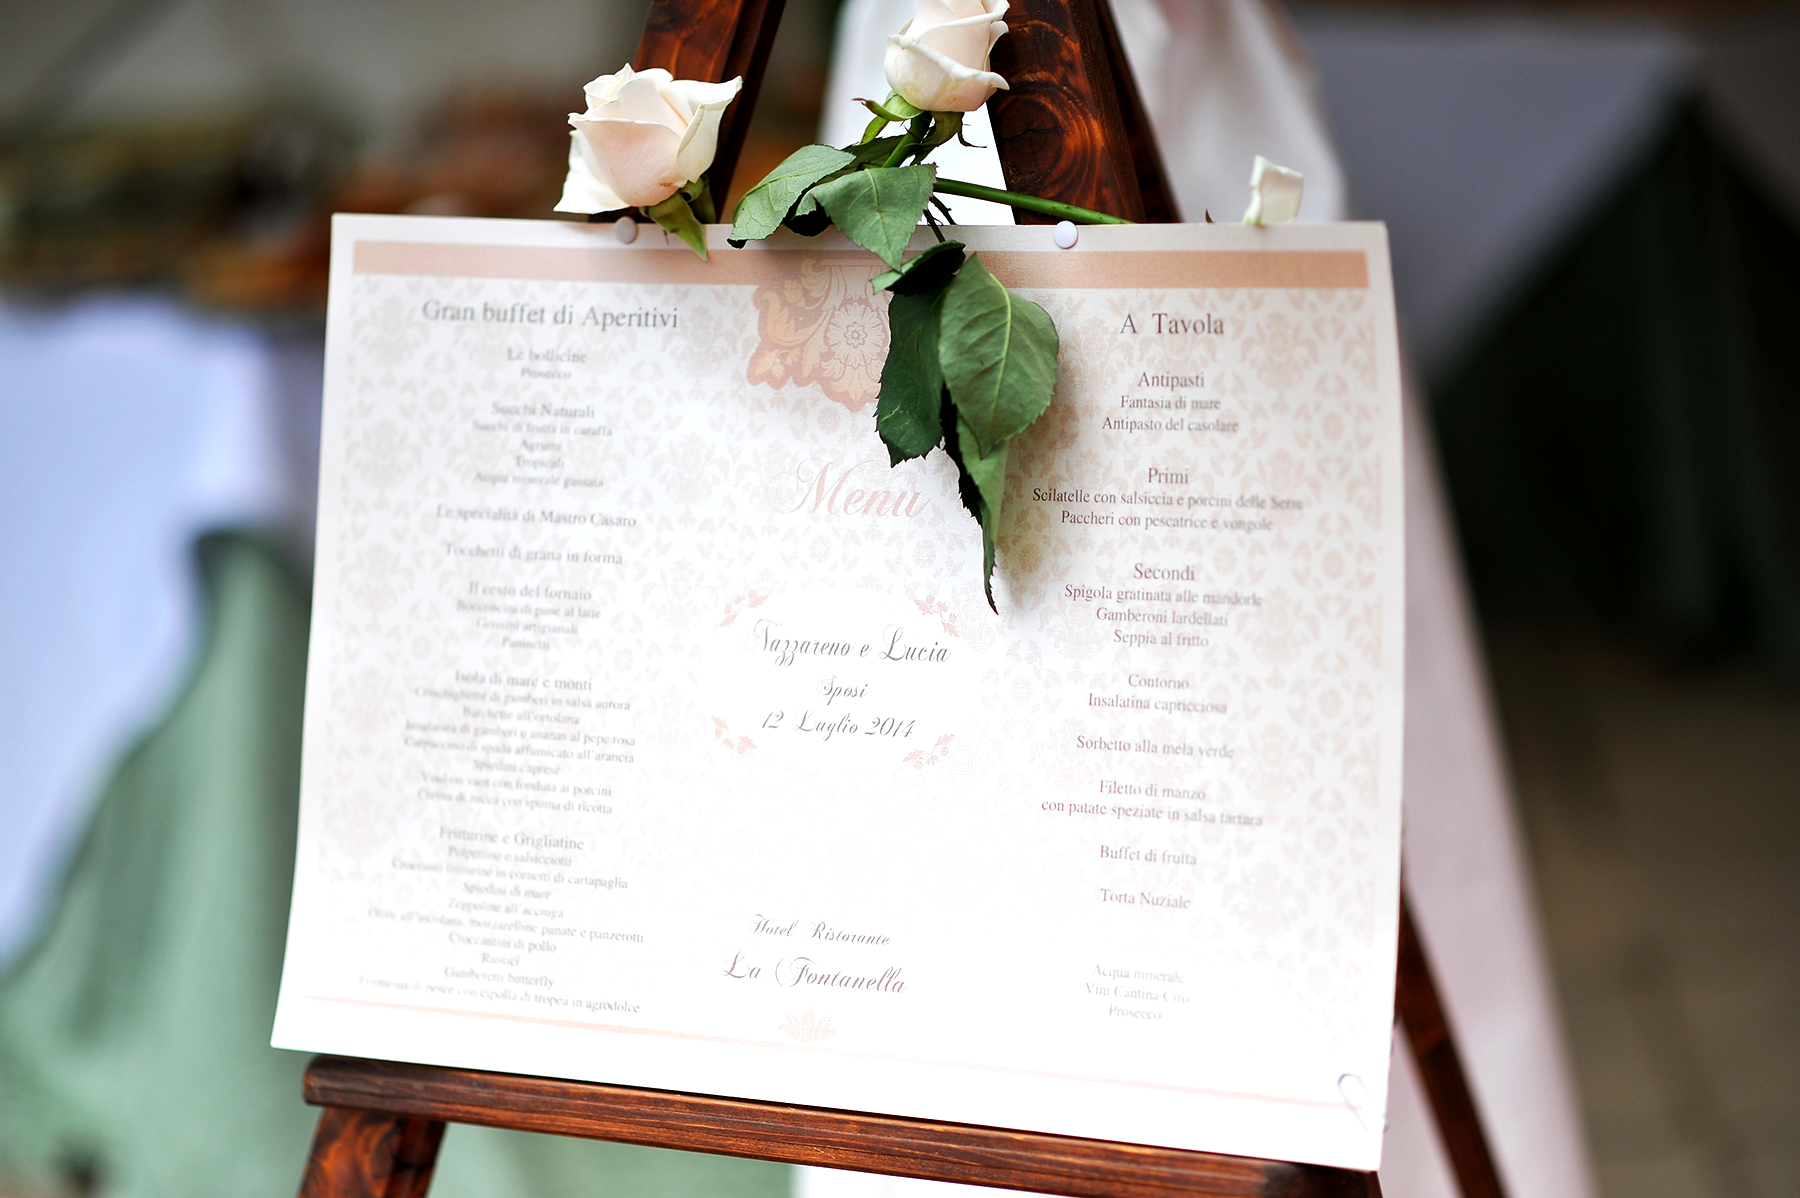 Gran buffet di Aperitivi
Le bollicine
Prosecco
Succhi Naturali
Succhi di frutta in caraffa
Agrumi
Tropicali
Acqua minerale gassata
Le specialità di Mastro Casaro
Tocchetti di grana in forma
Il cesto del fornaio
Bocconcini di pane al latte
Grissini artigianali
Paninetti
Isola di mare e monti
Conchigliette di gamberi in salsa aurora
Barchette all'ortolana
Insalatina di gamberi e ananas al pepe rosa
Carpaccino di spada affumicato all'arancia
Spiedini caprese
Voul ou vant con fonduta ai porcini
Crema di zucca con spuma di ricotta
Fritturine e Grigliatine
Polpettine e salsicciotti
Croccanti fritturine in cornetti di cartapaglia
Spiedini di mare
Zeppoline all'acciuga
Olive all'ascolana, mozzarelline panate e panzerotti
Croccantini di pollo
Rustici
Gambereto butterfly
di pesce con cipolla di tropea in agrodolce
Menu
Nazzareno e Lucia
Sposi
12 Luglio 2014
Hotel Ristorante
La Fontanella
A Tavola
Antipasti
Fantasia di mare
Antipasto del casolare
Primi
Scilatelle con salsiccia e porcini delle Serre
Paccheri con pescatrice e vongole
Secondi
Spigola gratinata alle mandorle
Gamberoni lardellati
Seppia al fritto
Contorno
Insalatina capricciosa
Sorbetto alla mela verde
Filetto di manzo
con patate speziate in salsa tartara
Buffet di frutta
Torta Nuziale
Acqua minerale
Vini Cantina Ciro
Prosecco